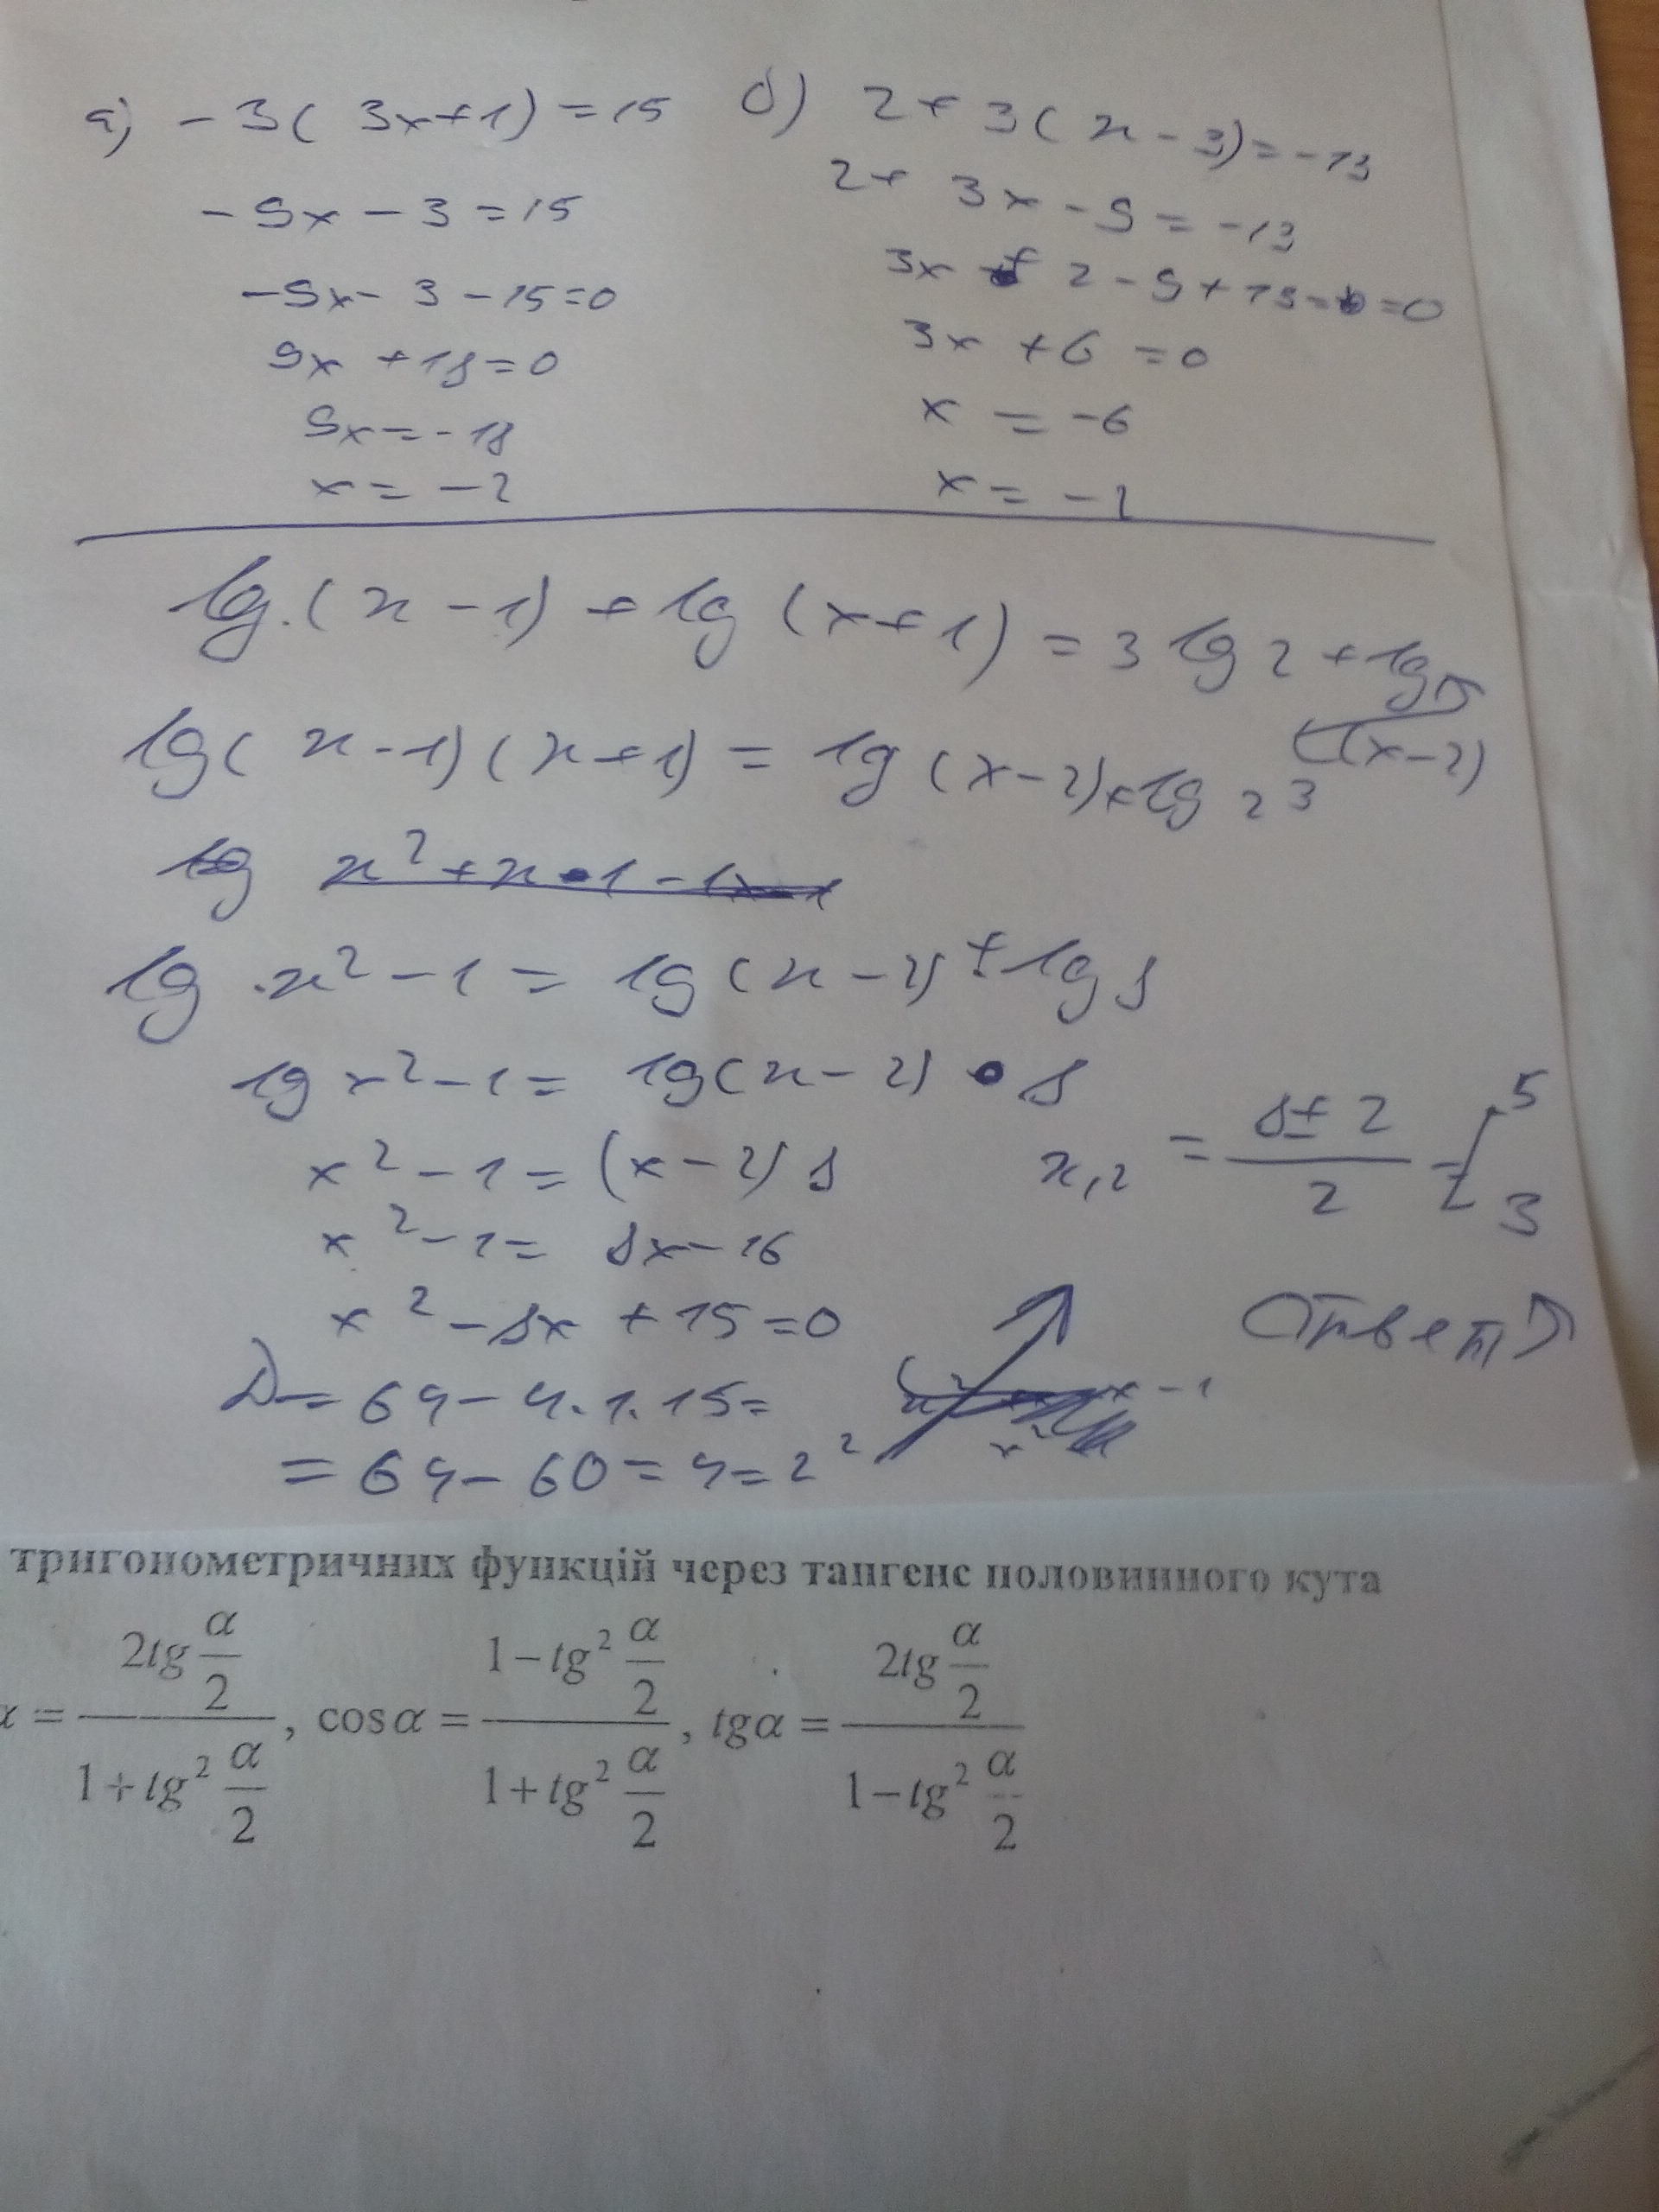 а) -3(3x+1)=15
-9x-3=15
-9x-3-15=0
9x+18=0
9x=-18
x=-2
б) 2+3(x-3)=-13
2+3x-9=-13
3x+2-9+13=0
3x+6=0
x=-6
x=-2
lg(x-1)+lg(x+1)=3lg2+lg
(x-2)
lg(x-1)(x+1)=lg(x-2)+lg2³
lg x²+x-1-1x-1
lg x²-1=lg(x-2)+lg8
lg x²-1=lg(x-2)•8
x²-1=(x-2)8
x²-1=8x-16
x²-8x+15=0
D=64-4·1·15=
=64-60=4=2²
x,₂=(8±2)/2=[5 3
Ответ
x-1
x²
тригонометричних функцій через тангенс половинного кута
α = (2tg α/2)/(1+tg² α/2), cosα = (1-tg² α/2)/(1+tg² α/2), tgα = (2tg α/2)/(1-tg² α/2)